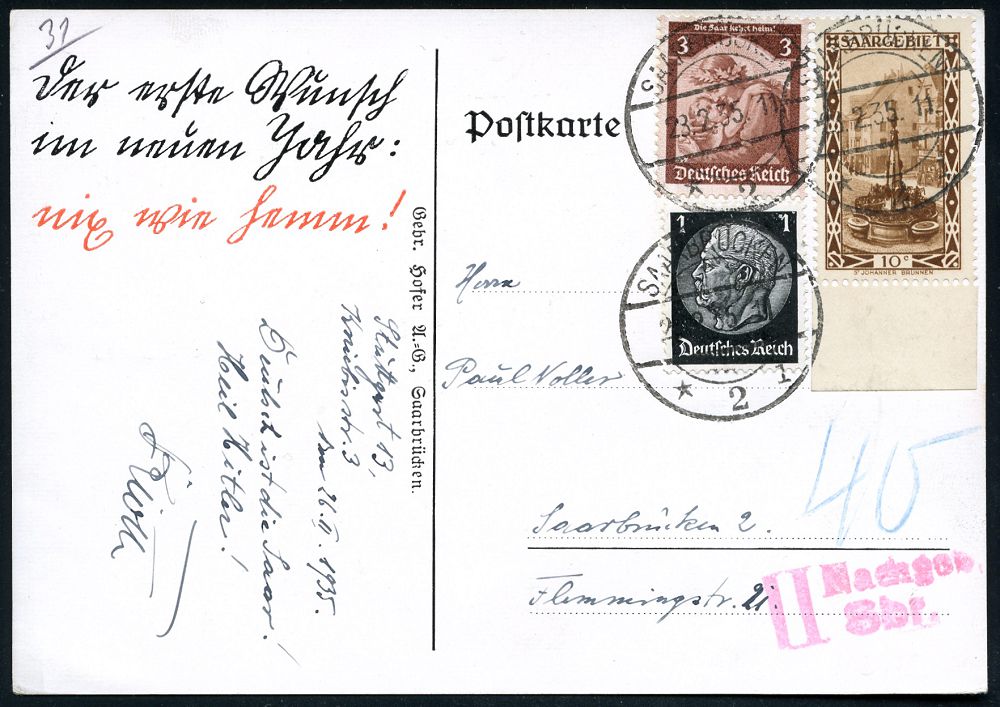 31
Der erste Wunsch
im neuen Jahr:
nix wie hemm!
Gebr. Hofer A.-G., Saarbrücken.
Stuttgart 13,
Kniebisstr. 3
den 26. II. 1935.
Deutsch ist die Saar!
Heil Hitler!
Postkarte
Die Saar kehrt heim!
3 3
Deutsches Reich
SAARBRÜCKEN
28.2.35. 11
★ 2
SAARGEBIET
2.35. 11
10 c
ST JOHANNER BRUNNEN
1 1
Deutsches Reich
SAARBRÜCKEN
★ 2
Herrn
Paul Voller
40
Saarbrücken 2.
Flemmingstr. 21.
II Nachgeb.
Sbr.